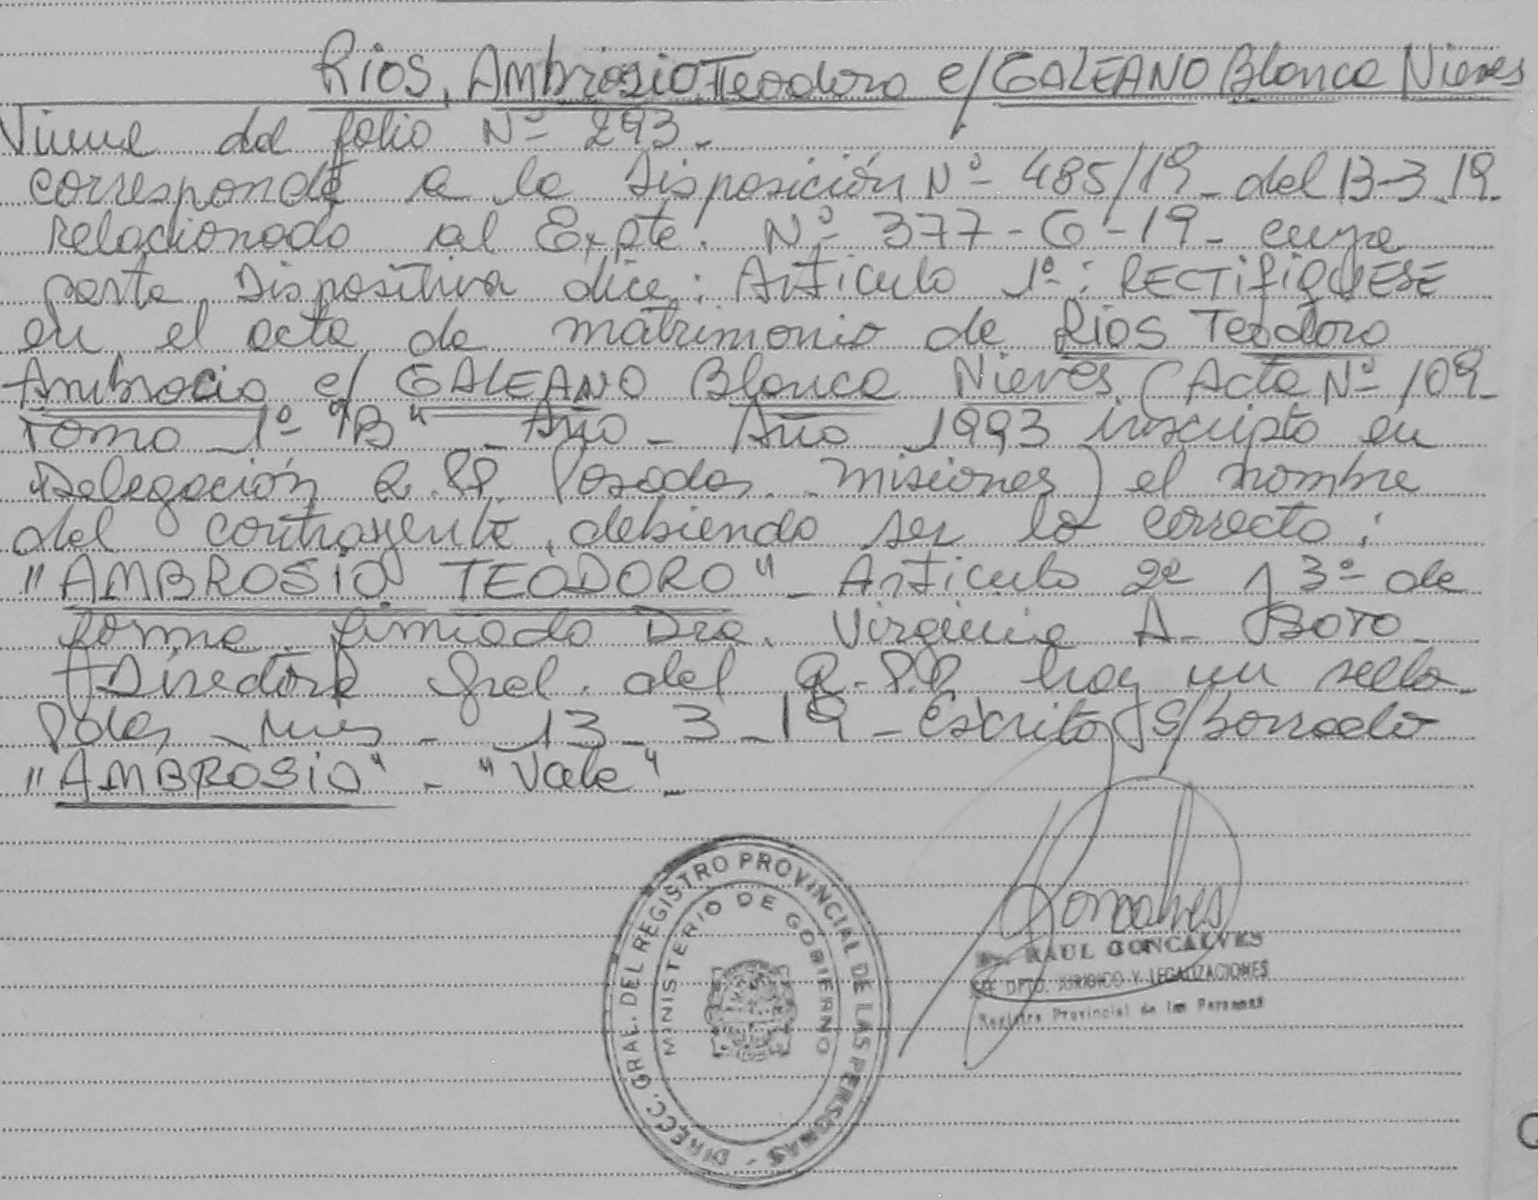 Rios, Ambrosio Teodoro c/ GALEANO Blanca Nieves
Viene del folio Nº 293.-
corresponde a la Disposición Nº 485/19 - del 13-3-19.
relacionado al Expte. Nº 377-G-19 - cuya
parte Dispositiva dice: Artículo 1º: RECTIFIQUESE
en el acta de matrimonio de Rios Teodoro
Ambrocio c/ GALEANO Blanca Nieves (Acta Nº 109-
Tomo 1º "B" - Año - Año 1993 inscripto en
Delegación R.P.P. Posadas Misiones) el nombre
del contrayente, debiendo ser lo correcto:
"AMBROSIO TEODORO" - Artículo 2º y 3º de
forma firmado Dra. Virginia A. BOTO
Directora Gral. del R.P.P. hay un sello.
Pdas, Mnes - 13-3-19 - Escrito S/Borrado
"AMBROSIO" - "Vale" -
Goncalves
Dr. RAUL GONCALVES
DPTO. JURIDICO Y LEGALIZACIONES
Registro Provincial de las Personas
DIRECC. GRAL. DEL REGISTRO PROVINCIAL DE LAS PERSONAS -
MINISTERIO DE GOBIERNO